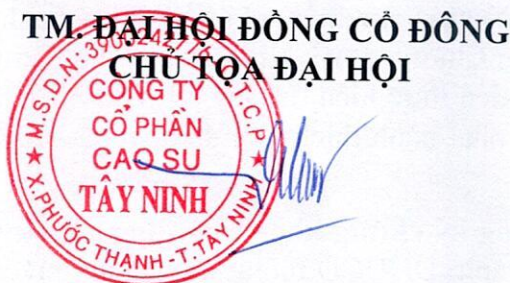 TM. ĐẠI HỘI ĐỒNG CỔ ĐÔNG
CHỦ TỌA ĐẠI HỘI
M.S.D.N: 3900242776 - C.T.C.P
CÔNG TY
CỔ PHẦN
CAO SU
TÂY NINH
X.PHƯỚC THẠNH - T.TÂY NINH